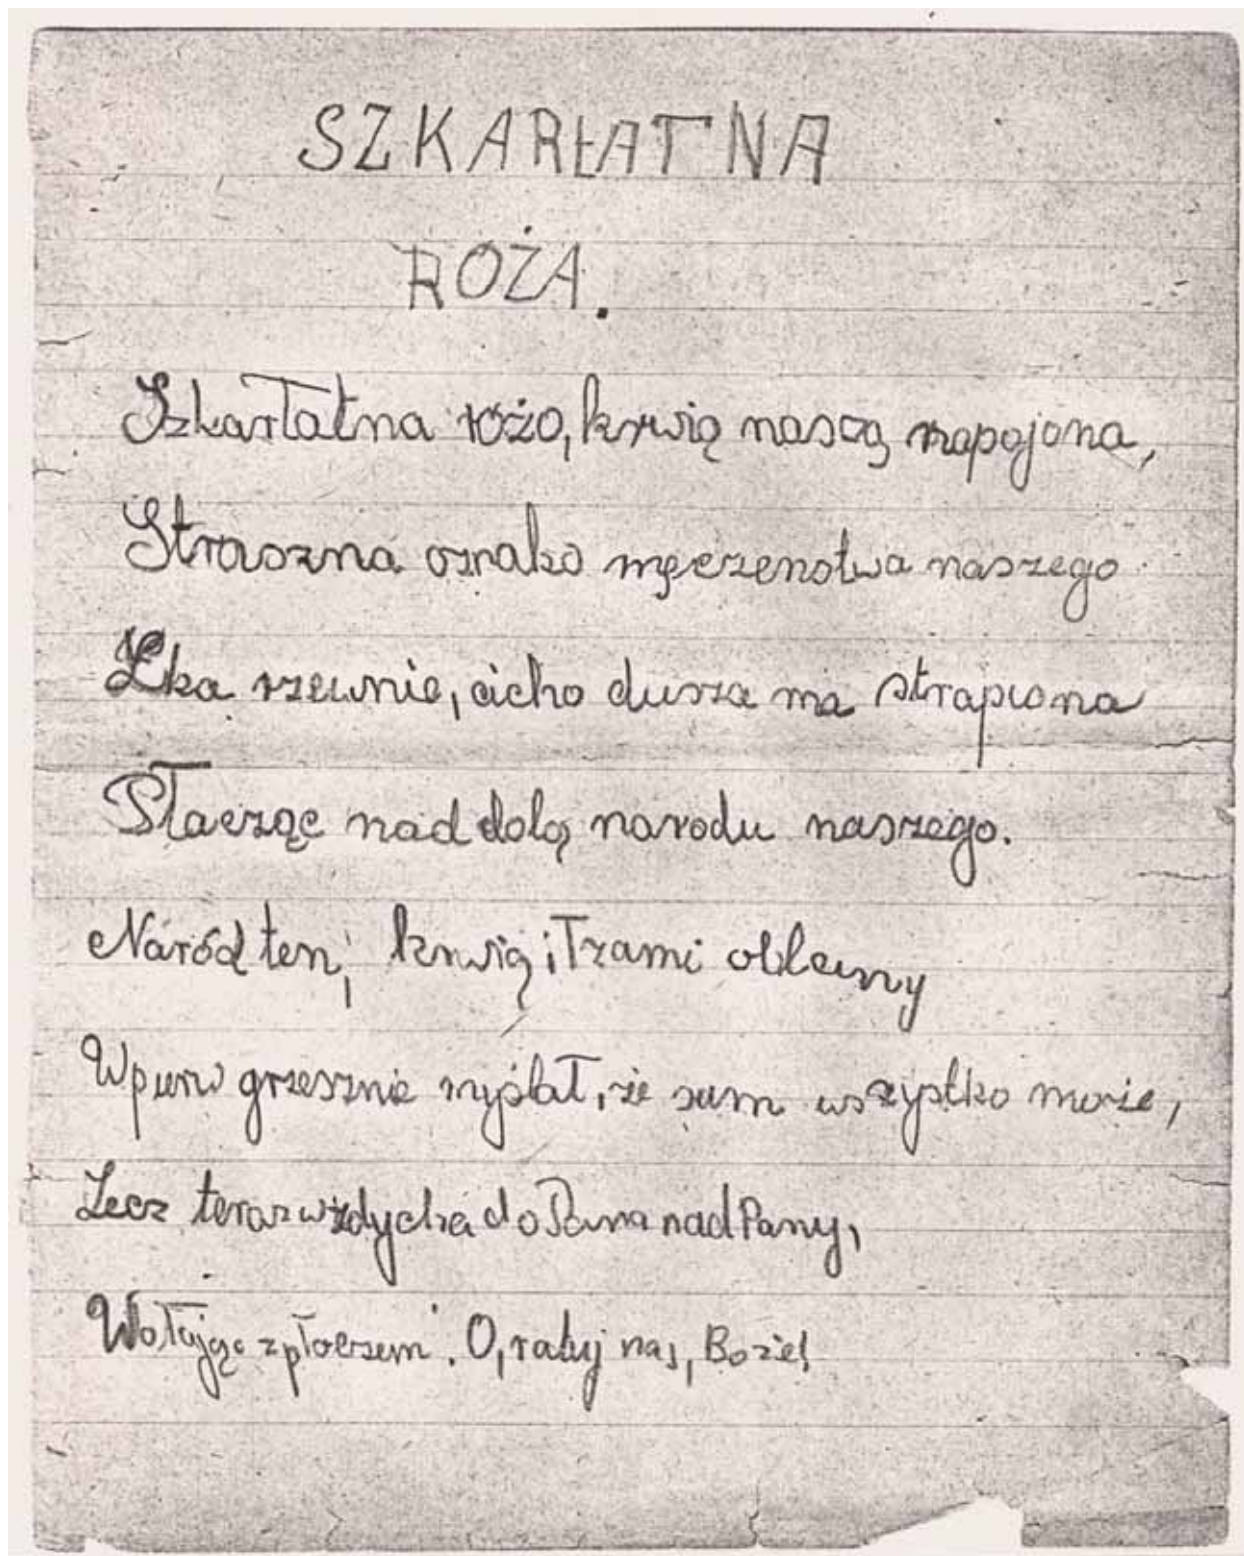 SZKARŁATNA
RÓŻA.
Szkarłatna różo, krwią naszą napojona,
Straszna oznako męczenstwa naszego
Łka rzewnie, cicho dusza ma strapiona
Płacząc nad dolą narodu naszego.
Naród ten, krwią i łzami oblany
Wpierw grzesznie myślał, że sam wszystko może,
Lecz teraz wzdycha do Pana nad Pany,
Wołając z płaczem: O, ratuj nas, Boże!